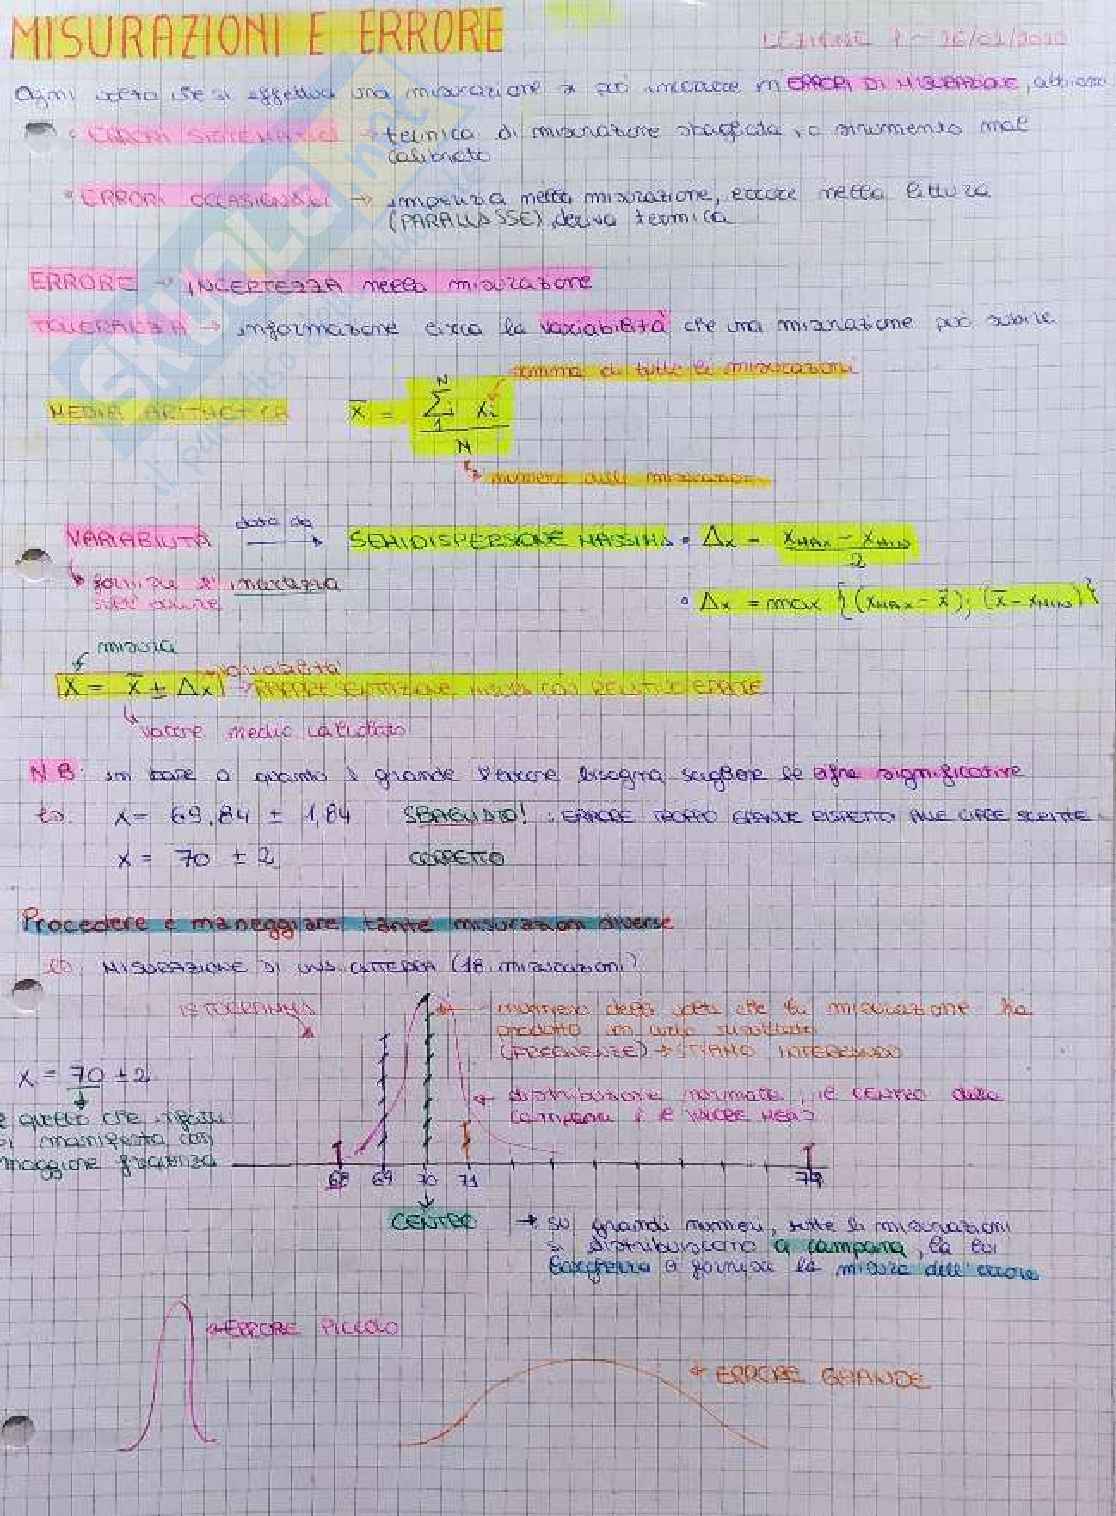 MISURAZIONI E ERRORE
LEZIONE 1 -
Ogni volta che si effettua una misurazione si può incorrere in ERRORI DI MISURAZIONE, abbiamo
• ERRORI SISTEMATICI → tecnica di misurazione sbagliata, o strumento mal
calibrato
• ERRORI OCCASIONALI → imperizia nella misurazione, errore nella lettura
(PARALLASSE), deriva termica
ERRORE → INCERTEZZA nella misurazione
TOLLERANZA → informazione circa la variabilità che una misurazione può subire
somma di tutte le misurazioni
MEDIA ARITMETICA x̄ = Σ xi / N
numero delle misurazioni
VARIABILITÀ data da → SEMIDISPERSIONE MASSIMA • Δx = xMAX - xMIN / 2
fornisce l'incertezza
• Δx = max {(xMAX - x̄); (x̄ - xMIN)}
misura
variabilità
X = x̄ ± Δx → RAPPRESENTAZIONE MISURA CON RELATIVO ERRORE
valore medio calcolato
NB: in base a quanto è grande l'errore bisogna scegliere le cifre significative
es. x = 69,84 ± 1,84 SBAGLIATO! : ERRORE TROPPO GRANDE RISPETTO ALLE CIFRE SCELTE
x = 70 ± 2 CORRETTO
Procedere e maneggiare tante misurazioni diverse
es. MISURAZIONE DI UNA CATTEDRA (18 misurazioni)
ISTOGRAMMA
numero delle volte che la misurazione ha
prodotto un certo risultato
(FREQUENZE) → STIAMO INTERENDO
x = 70 ± 2
distribuzione normale, il CENTRO della
campana è il VALORE MEDIO
è quello che
si manifesta con
maggiore frequenza
68 69 70 71
CENTRO
→ su grandi numeri, tutte le misurazioni
si distribuiscono a campana, la cui
larghezza ci fornisce la misura dell'errore
ERRORE PICCOLO
ERRORE GRANDE
SKUOLA.net